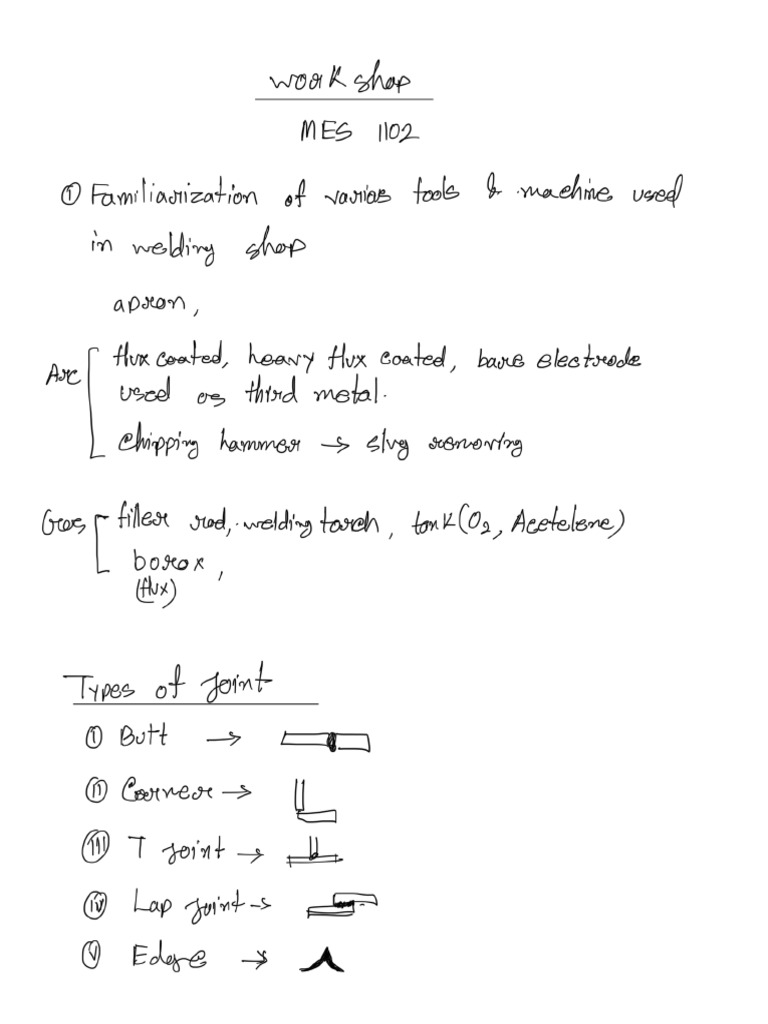 workshop
MES 1102
① Familiarization of varios tools & machine used
in welding shop
apron,
Arc flux coated, heavy flux coated, bare electrode
used as third metal.
chipping hammer → slug removing
Gas filler rod, welding torch, tank (O2, Acetelene)
borox,
(flux)
Types of joint
ⓘ Butt →
ⓘⓘ Corner →
ⓘⓘⓘ T joint →
ⓘⓥ Lap joint →
ⓥ Edge →